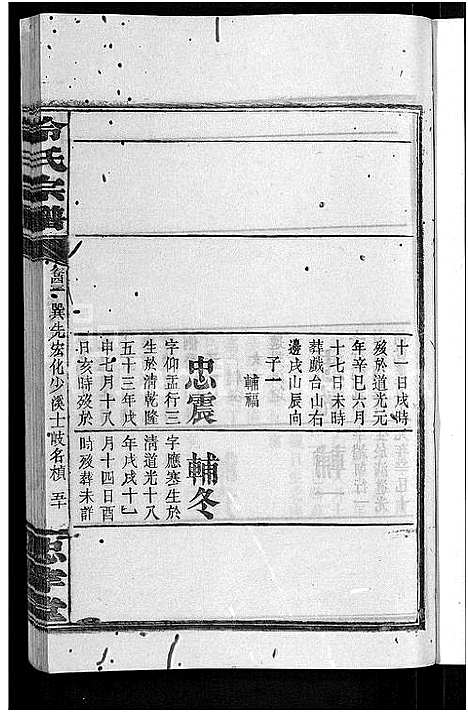 十一日戌時
歿於道光元
年辛巳六月
十七日未時
葬戲台山右
邊戌山辰向
子一
輔福
忠震
字仰孟行三
生於清乾隆
五十三年戊
申七月十八
日亥時歿於
輔冬
字應寒生於
清道光十八
年戊戌十一
月十四日酉
時歿葬未詳
氏宗譜
巽先宏化少溪士陂名楨 五十
忠孝堂